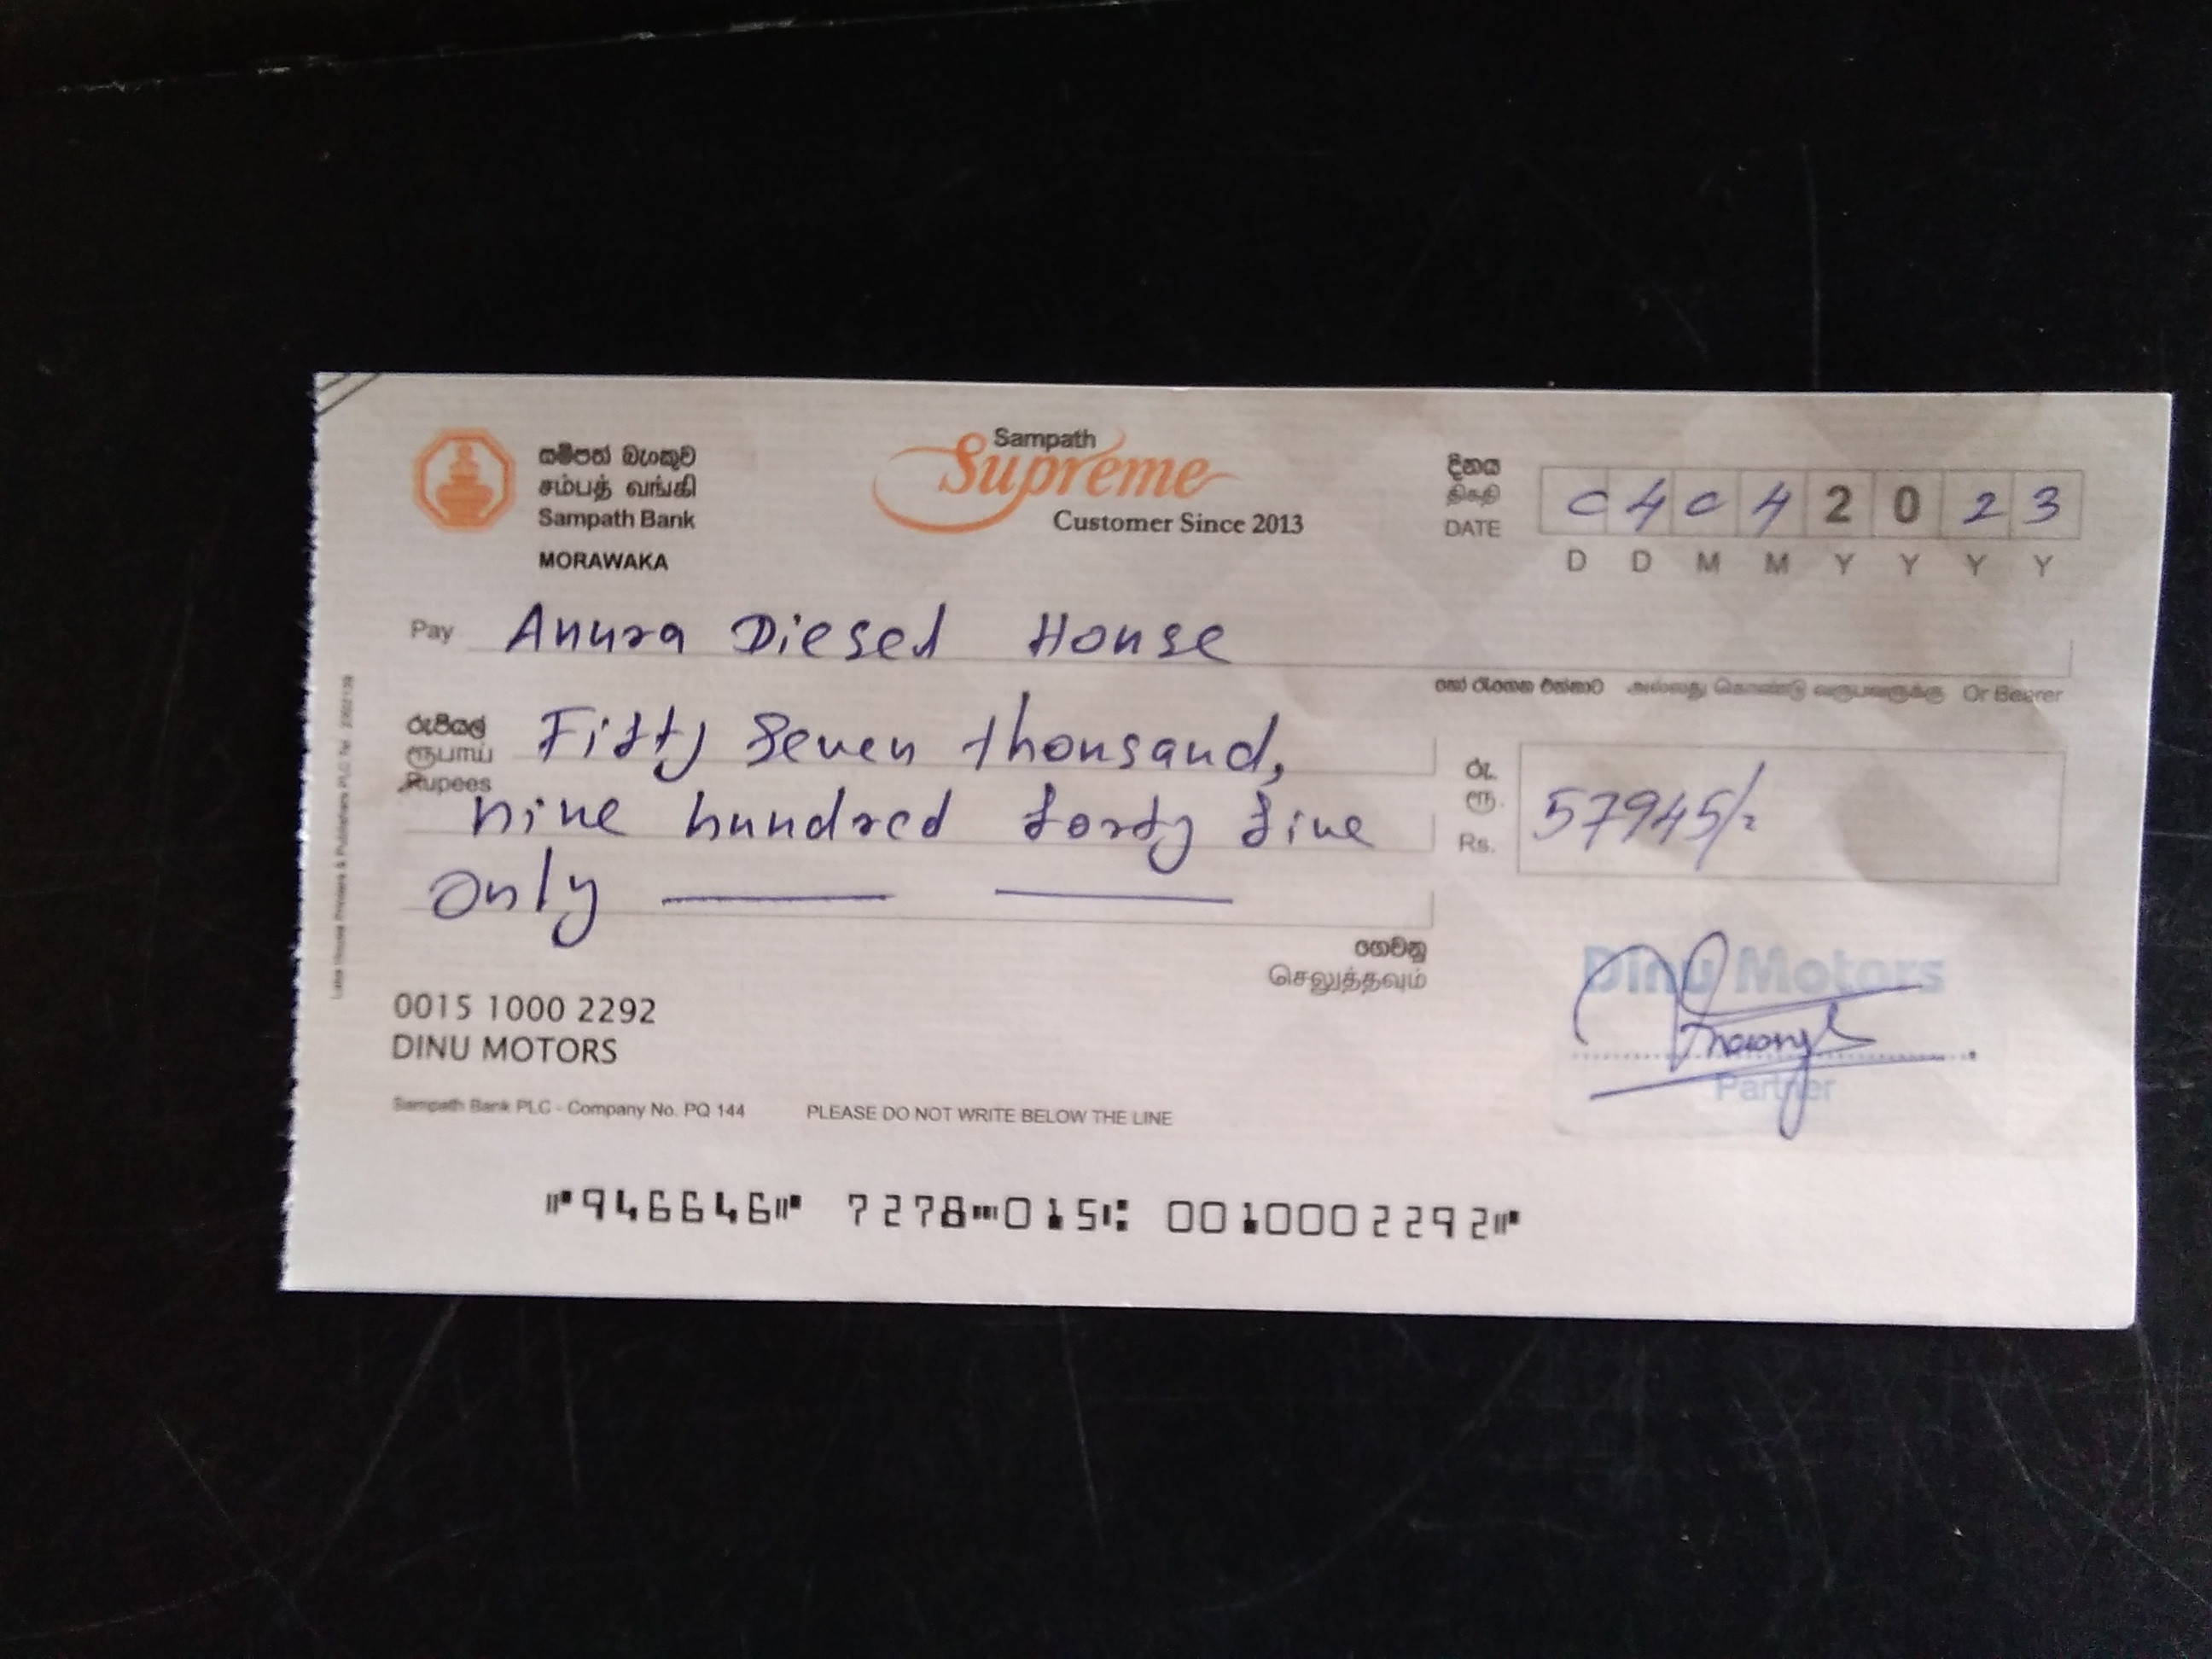 සම්පත් බැංකුව
சம்பத் வங்கி
Sampath Bank
MORAWAKA
Sampath
Supreme
Customer Since 2013
දිනය
திகதி
DATE
0 4 0 4 2 0 2 3
D D M M Y Y Y Y
Pay Anura Diesel House
හෝ රැගෙන එන්නාට அல்லது கொண்டு வருபவருக்கு Or Bearer
රුපියල්
ரூபாய்
Rupees
Fifty Seven thousand,
nine hundred forty five
only
රු.
ரூ.
Rs.
57945/-
ගෙවනු
செலுத்தவும்
Dinu Motors
Partner
0015 1000 2292
DINU MOTORS
Sampath Bank PLC - Company No. PQ 144 PLEASE DO NOT WRITE BELOW THE LINE
Lake House Printers & Publishers PLC
⑈946646⑈ 7278⑉015⑆ 0010002292⑈